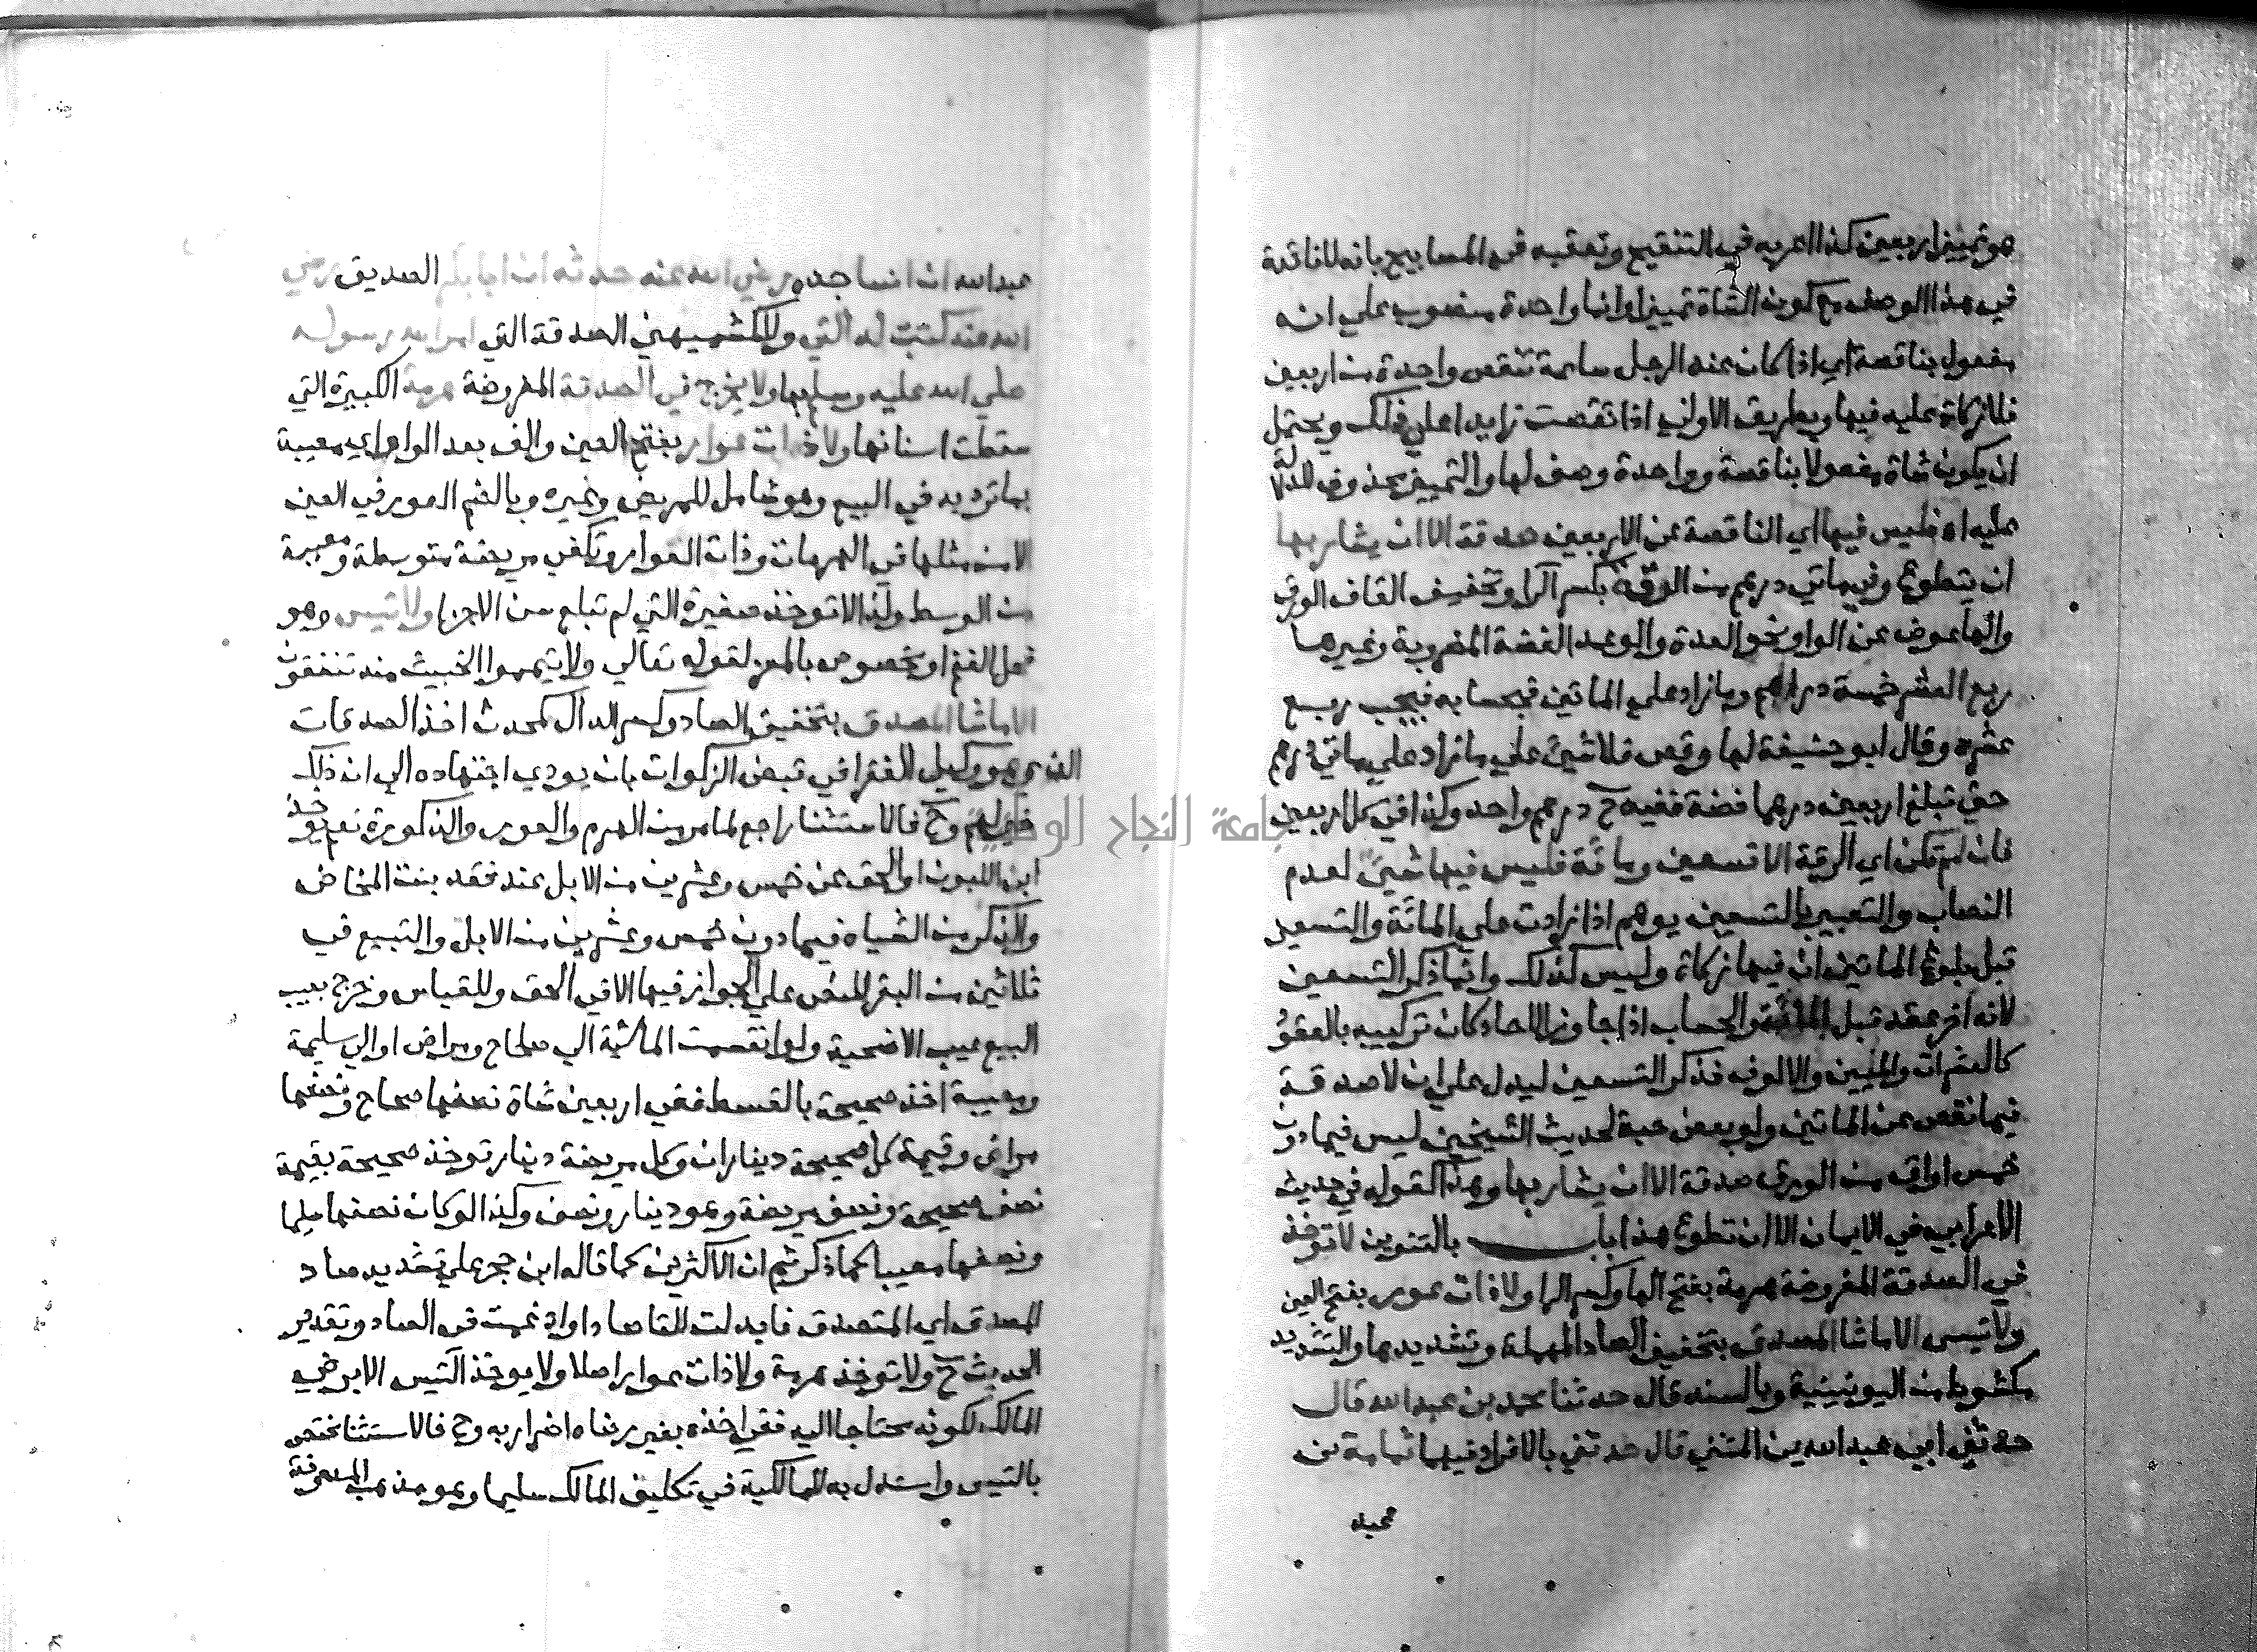 هو تمييز اربعين كذا اعربه في التنقيح وتعقبه في المصابيح بانه لا فائدة
في هذا الوصف مع كون الشاة تمييزا وانما واحدة منصوب علي انه
مفعول بناقصة اي اذا كان عند الرجل سايمة تنقص واحدة من اربعين
فلا زكاة عليه فيها وبطريق الاولي اذا نقصت زايدا علي ذلك ويحتمل
ان يكون شاة مفعولا بناقصة وواحدة وصف لها والتمييز محذوف للدلالة
عليه اه فليس فيها اي الناقصة عن الاربعين صدقة الا ان يشا ربها
ان يتطوع وفي مائتي درهم من الرقة بكسر الرا وتخفيف القاف الورق
والها عوض عن الواو نحو العدة والوعد الفضة المضروبة وغيرها
ربع العشر خمسة دراهم وما زاد علي المائتين فبحسابه فيجب ربع
عشره وقال ابو حنيفة لها وقص فلا شيئ علي ما زاد علي مائتي درهم
حتي تبلغ اربعين درهما فضة ففيه ح درهم واحد وكذا في كل اربعين
فان لم تكن اي الرقة الا تسعين ومائة فليس فيها شيئ لعدم
النصاب والتعبير بالتسعين يوهم اذا زادت علي المائة والتسعين
قبل بلوغ المائتين ان فيها زكاة وليس كذلك وانما ذكر التسعين
لانه اخر عقد قبل المائة والحساب اذا جاوز الاحاد كان تركيبه بالعقود
كالعشرات والمئين والالوف فذكر التسعين ليدل علي ان لا صدقة
فيما نقص عن المائتين ولو بعض حبة لحديث الشيخين ليس فيما دون
خمس اواق من الورق صدقة الا ان يشا ربها وهذا كقوله في حديث
الاعرابي في الايمان الا ان تطوع هذا باب بالتنوين لا توخذ
في الصدقة المفروضة هرمة بفتح الها وكسر الرا ولا ذات عور بفتح العين
ولا تيس الا ما شا المصدق بتخفيف الصاد المهملة وتشديدها والتشديد
مكشوط من اليونينية وبالسند قال حدثنا محمد بن عبد الله قال
حدثني ابي عبد الله بن المثني قال حدثني بالافراد فيهما ثمامة بن
عبد الله ان انسا جده رضي الله عنه حدثه ان ابا بكر الصديق رضي
الله عنه كتب له التي وللكشميهني الصدقة التي امر الله رسوله
صلي الله عليه وسلم بها ولا يخرج في الصدقة المفروضة هرمة الكبيرة التي
سقطت اسنانها ولا ذات عوار بفتح العين والف بعد الواو اي معيبة
بما ترد به في البيع وهو شامل للمريض وغيره وبالضم العور في العين
الا من مثلها في الهرمات وذات العوار وتكفي مريضة متوسطة ومعيبة
من الوسط ولذا لا توخذ صغيرة التي لم تبلغ سن الاجزا ولا تيس وهو
فحل الغنم او مخصوص بالمعز لقوله تعالي ولا تيمموا الخبيث منه تنفقون
الا ما شا المصدق بتخفيف الصاد وكسر الدال كمحدث اخذ الصدقات
الذي هو وكيل الفقرا في قبض الزكوات بان يودي اجتهاده الي ان ذلك
خير لهم وح فالاستثنا راجع لما مر من الهرم والعور والذكورة نعم يوخذ
ابن اللبون او الحق عن خمس وعشرين من الابل عند فقد بنت المخاض
والذكر من الشياه فيما دون خمس وعشرين من الابل والتبيع في
ثلاثين من البقر للنص علي الجواز فيها الا في الحق وللقياس وخرج بعيب
البيع عيب الاضحية ولو انقسمت الماشية الي صحاح ومراض او الي سليمة
ومعيبة اخذ صحيحة بالقسط ففي اربعين شاة نصفها صحاح ونصفها
مراض وقيمة كل صحيحة ديناران وكل مريضة دينار توخذ صحيحة بقيمة
نصف صحيحة ونصف مريضة وهو دينار ونصف وكذا لو كان نصفها سليما
ونصفها معيبا كما ذكر ثم ان الاكثرين كما قاله ابن حجر علي تشديد صاد
المصدق اي المتصدق فابدلت التا صادا وادغمت في الصاد وتقدير
الحديث ح ولا توخذ هرمة ولا ذات عوار اصلا ولا يوخذ التيس الا برضي
المالك لكونه محتاجا اليه ففي اخذه بغير رضاه اضرار به وح فالاستثنا مختص
بالتيس واستدل به للمالكية في تكليف المالك سليما وهو مذهب المدونة
جامعة النجاح الوطنية